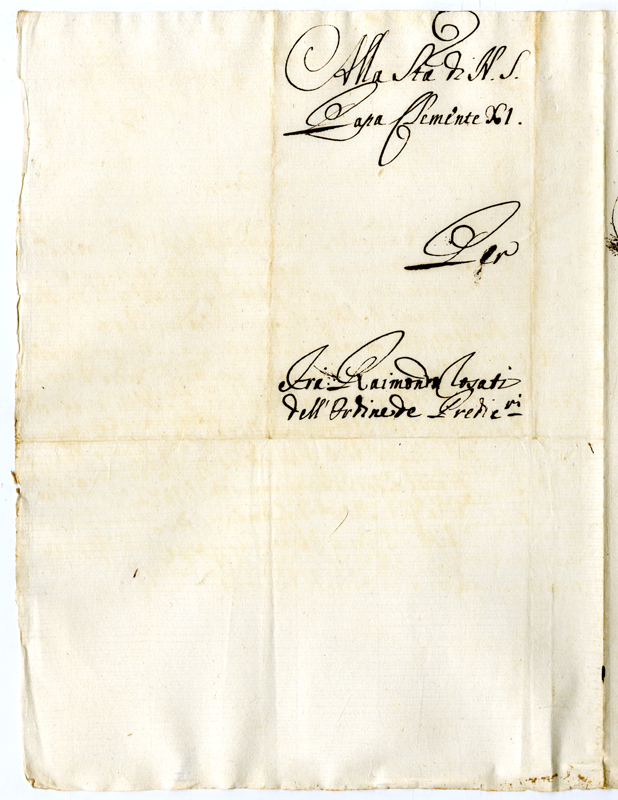 Alla Sta di N. S.
Papa Clemente XI.
Per
Fra: Raimondo
dell'Ordine de Predicri